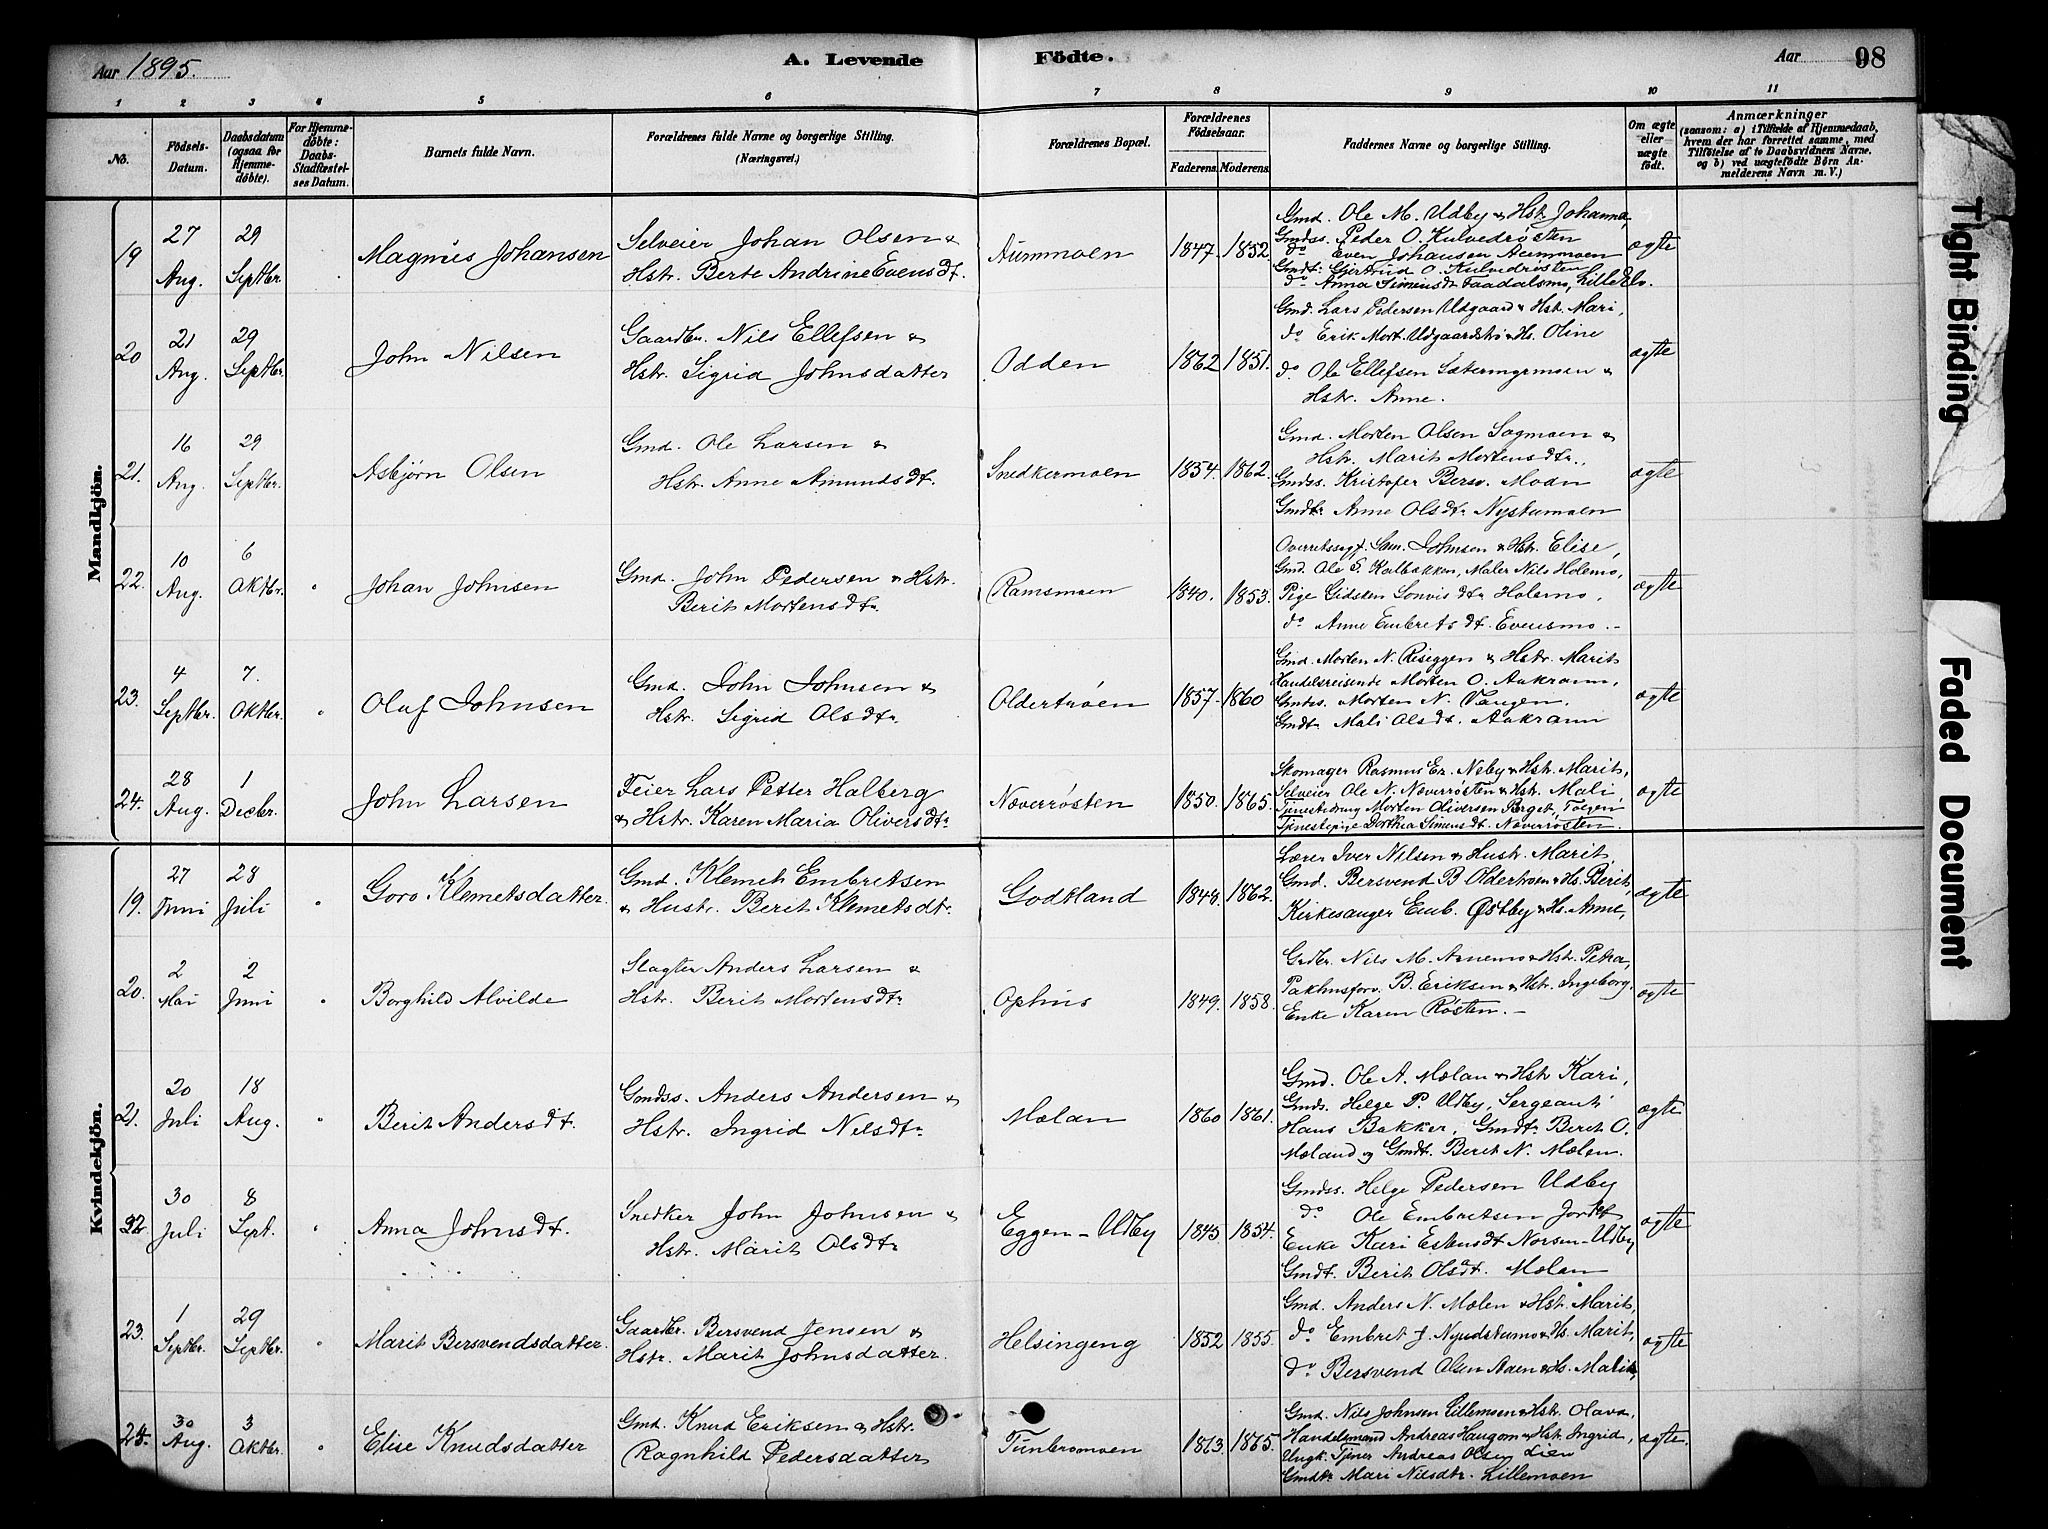 Aar 1895. A. Levende Födte. Aar 98
1 2 3 4 5 6 7 8 9 10 11
No. Födsels-Datum. Daabsdatum (ogsaa for Hjemme-döbte). For Hjemme-döbte: Daabs-Stadfæstel-ses Datum. Barnets fulde Navn. Forældrenes fulde Navne og borgerlige Stilling. (Næringsvei.) Forældrenes Bopæl. Forældrenes Födselsaar. Faderens. Moderens. Faddernes Navne og borgerlige Stilling. Om ægte eller uægte födt. Anmærkninger (saasom: a) i Tilfælde af Hjemmedaab, hvem der har forrettet samme, med Tilföielse af to Daabsvidners Navne, og b) ved uægtefödte Börn An-melderens Navn m. V.)
Mandkjön.
19 27 Aug. 29 Septbr. Magnus Johansen
Selveier Johan Olsen &
Hstr. Berte Andrine Evensdt.
Aummoen 1847. 1852.
Gmd. Ole M. Udby & Hstr Johanna,
Gmdss. Peder O. Kulvedrøsten
do Even Johansen Aummoen
Gmdt. Gjertrud O. Kulvedrøsten
do Anna Simensdt Faadalsmo, Lille
ægte
20 21 Aug. 29 Septbr. John Nilsen
Gaardbr. Nils Ellefsen &
Hstr. Sigrid Johnsdatter
Odden 1862 1851.
Gmd. Lars Pedersen Udgaard & Hstr. Mari,
do Erik Mort. Udgaardstrø & Hs. Oline
do Ole Ellefsen &
Hstr. Anne.
ægte
21. 16 Aug. 29 Septbr. Asbjørn Olsen
Gmd. Ole Larsen &
Hstr. Anne Amundsdt.
Snedkermoen 1854. 1862.
Gmd. Morten Olsen Sagmoen &
Hstr. Marit Mortensdtr.,
Gmdss. Kristofer Bersv. Moan
Gmdtr. Anne Olsdtr Nystumoen
ægte
22. 10 Aug. 6 Oktbr. Johan Johnsen
Gmd. John Pedersen & Hstr.
Berit Mortensdtr
Ramsmoen 1840. 1853.
Overretssagf. Sam. Johnsen & Hstr. Elise,
Gmd. Ole E. Kalbækken, Maler Nils Holemo,
Pige Gidsken Holemo,
do Anne Embretsdt. Evensmo. —
ægte
23. 4 Septbr. 7. Oktbr. Oluf Johnsen
Gmd. John Johnsen &
Hstr. Sigrid Olsdtr
Oldertrøen 1857. 1860
Gmd. Morten N. Riseggen & Hstr. Marit
Handelsreisende Morten O. Aakrann,
Gmdss. Morten N. Vangen,
Gmdt. Mali Olsdt. Aakrann
ægte
24. 28 Aug. 1 Decbr. John Larsen
Feier Lars Petter Halberg
& Hstr. Karen Maria Oliversdtr
Nøverrøsten 1850. 1865.
Skomager Rasmus Er. Neby & Hstr. Marit,
Selveier Ole N. Nøverrøsten & Hstr. Mali
Tjenestedreng Morten Oliversen Berget, Tolgen,
Tjenestepige Dorthea Simensdt. Nøverrøsten.
ægte
Kvindekjön.
19. 27 Juni 28 Juli Goro Klemetsdatter.
Gmd. Klemet Embretsen
& Hustr. Berit Klemetsdtr.
Godtland 1848. 1862.
Lærer Iver Nilsen & Hustr. Marit,
Gmd. Bersvend B. Oldertrøen & Hs. Berit,
Kirkesanger Emb. Østby & Hs. Anne,
ægte
20. 2 Mai 2 Juni Borghild Alvilde
Slagter Anders Larsen &
Hstr. Berit Mortensdtr
Ophus 1849. 1858.
Grdbr. Nils M. Arnemo & Hstr. Petra,
Pakhusforv. B. Eriksen & Hstr. Ingeborg,
Enke Karen Røsten. —
ægte
21. 20 Juli 18 Aug. Berit Andersdt.
Gmdss. Anders Andersen &
Hstr. Ingrid Nilsdtr
Mølan 1860 1861.
Gmd. Ole A. Mølan & Hstr Kari,
Gmds. Helge P. Udby, Sergeant
Hans Bakker, Gmdtr. Berit O.
Møland og Gmdt. Berit N. Mølen.
ægte
22. 30 Juli 8 Sept. Anna Johnsdt.
Snedker John Johnsen &
Hstr. Marit Olsdtr
Eggen - Udby 1845 1854.
Gmdss. Helge Pedersen Udby
do Ole Embretsen Jordet
Enke Kari Estensdt Norsen - Udby
Gmdt. Berit Olsdt. Mølan
ægte
23. 1 Septbr. 29 Septbr. Marit Bersvendsdatter.
Gaardbr. Bersvend Jensen &
Hstr. Marit Johnsdatter.
Helsingeng 1852 1855.
Gmd. Anders N. Mølen & Hst. Marit,
do Embret J. Nyudstumo & Hs. Marit,
do Bersvend Olsen Aaen & Hs. Mali,
ægte
24. 30 Aug. 3 Oktbr. Elise Knudsdatter
Gmd. Knud Eriksen & Hstr.
Ragnhild Pedersdatter
Tunbromoen 1863. 1865.
Gmd. Nils Johnsen Lillemoen & Hstr. Olava,
Handelsmand Andreas Haugom & Hst. Ingrid,
Ungk. Tjener Andreas Olsen Lien
Gmdtr Mari Nilsdtr. Lillemoen
ægte.
Tight Binding
Faded Document